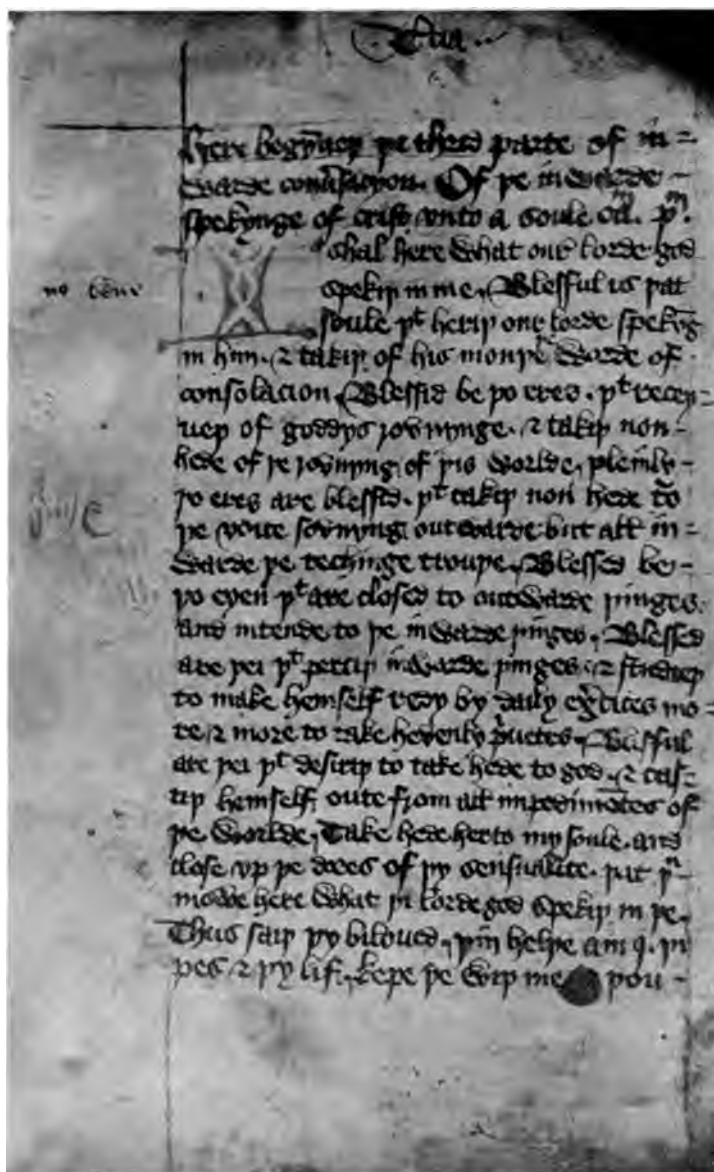 Here begynneþ þe thrid parte of in=
warde conuersacyon. Of þe inwarde
spekynge of crist vnto a soule ca. pm.
I shal here what our lorde god
no bene
spekiþ in me. Blesful is þat
soule þt heriþ our lorde spekyng
in him. & takiþ of his mouþe worde of
consolacion. Blessid be þo eres. þt recey=
ueþ of goddys rovnynge. & takiþ non
hede of þe rovnyng of þis worlde. pleinly
þo eres are blessid. þt takiþ non hede to
þe voice sovnyng outwarde but all in=
warde þe techinge trouþe. Blessed be
þo eyen þt are closed to outwarde þinges.
and intende to þe inwarde þinges. Blessed
are þei þt perciþ inwarde þinges. & studieþ
to make hemself redy by daily exercices mo=
re & more to take hevenly priuetes. Blisful
are þei þt desiriþ to take hede to god. & cas=
tiþ hemself oute from all impedimentes of
þe worlde. Take hede herto my soule. and
close vp þe dores of þy sensualite. þat þu
mowe here what þi lorde god spekiþ in þe.
Thus saiþ þy biloued. þin helpe am I. þi
pes & þy lif. kepe þe wiþ me þou